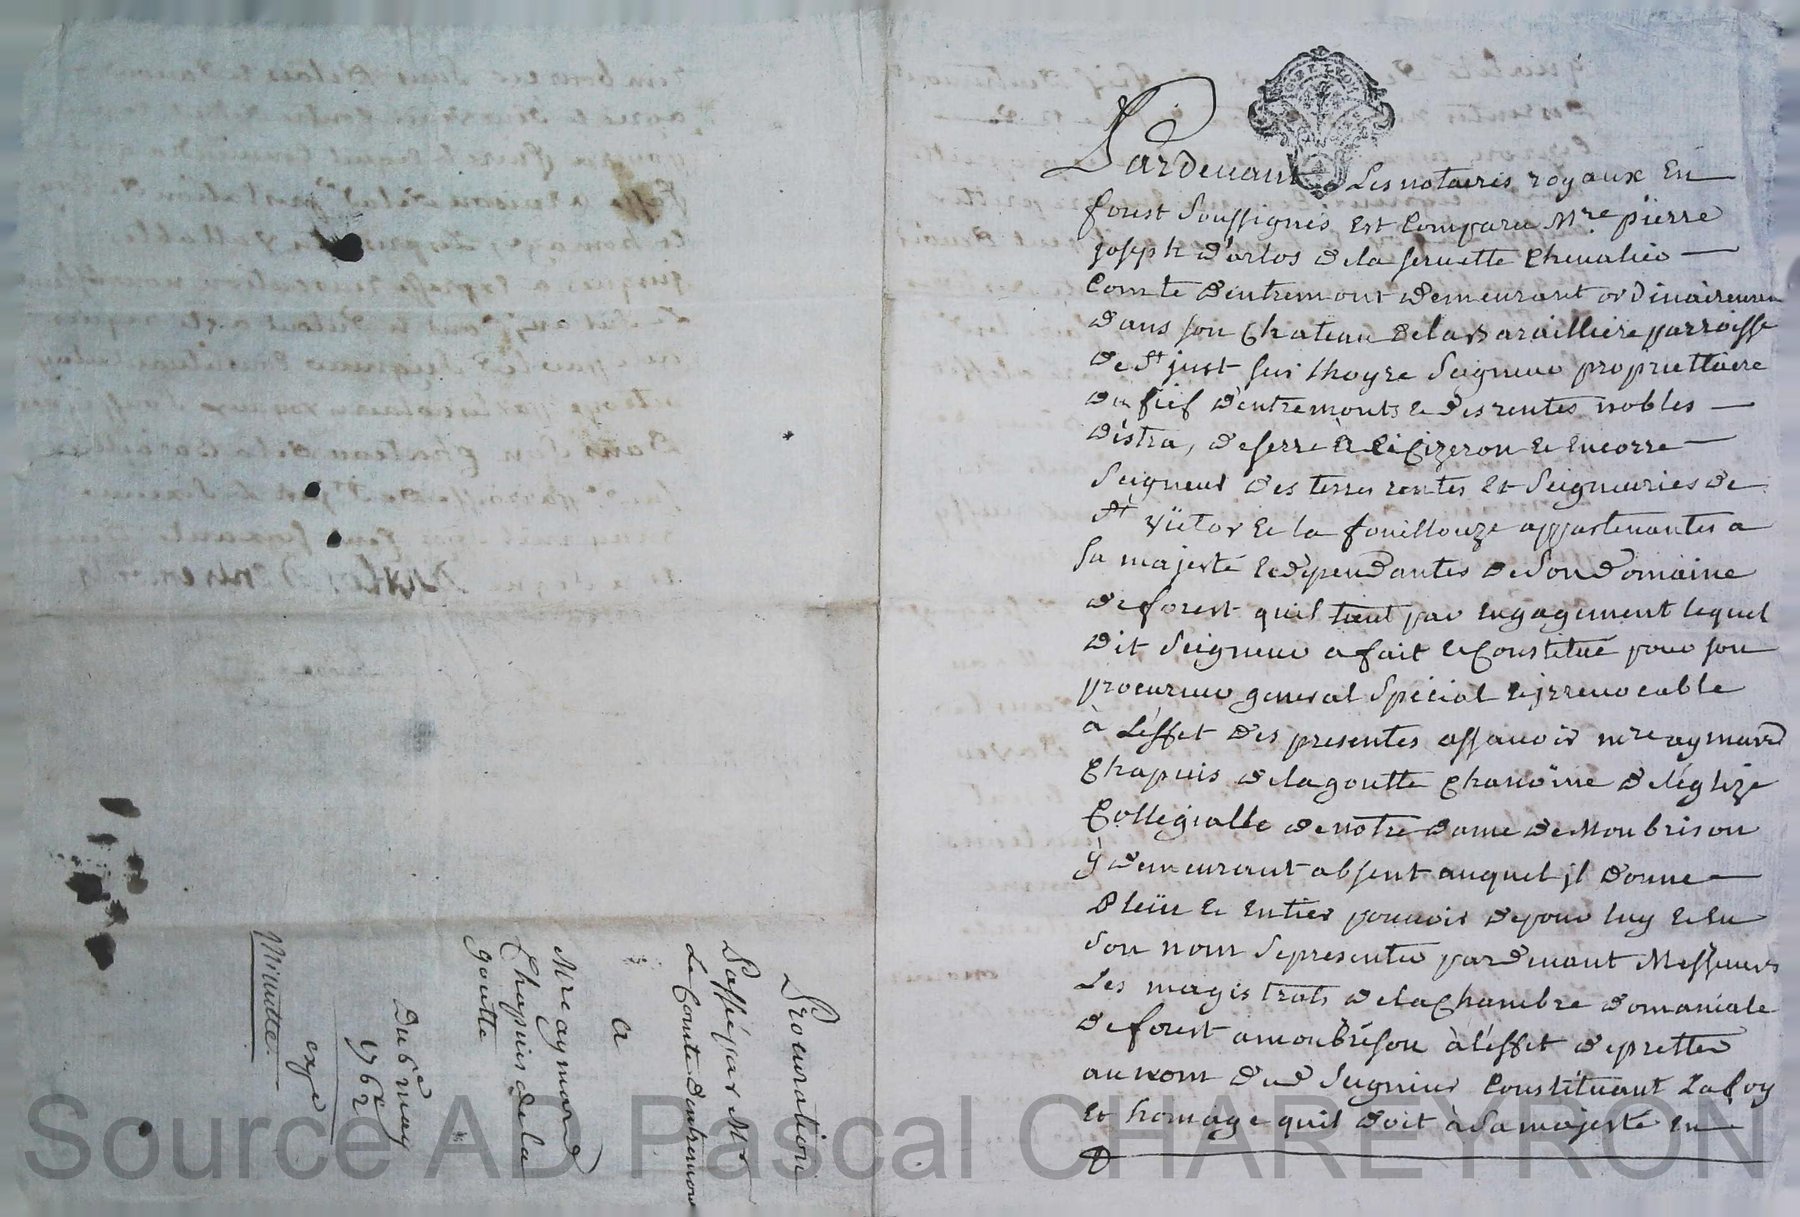 Pardevant Les notaires royaux En
forest soussignés Est Comparu Mre. pierre
joseph d'arlos de la servette Chevalier
Comte d'entremont demeurant ordinairement
dans son Chateau de la Baraillière parroisse
de St just sur Lhoyre Seigneur propriettaire
du fief d'entremonts & des rentes nobles
d'éstra, de serre & Cizeron & Encorre
Seigneur des terres rentes Et Seigneuries de
St victor & la fouillouze appartenantes a
Sa majesté & dependantes de son domaine
de forest quil tient par Engagement lequel
dit Seigneur a fait & Constitué pour son
procureur general Spécial & jrrevocable
à L'éffet des presentes assavoir mre aymard
Chapuis de la goutte Chanoine de léglize
Collégialle de notre dame de Monbrison
y demeurant absent auquel jl donne
Plein & Entier pouvoir de pour luy & En
son nom se presenter pardevant Messieurs
Les magistrats de la Chambre domaniale
de forest a monbrison à l'éffet de pretter
au nom dud Seigneur Constituant La foy
Et homage quil doit à Sa majesté En
Procuration
Passée par Mr
Le Comte d'entremont
a
Mre aymard
Chapuis de la
goutte
Du 6e may
1762
exp
Minutte
Source AD Pascal CHAREYRON